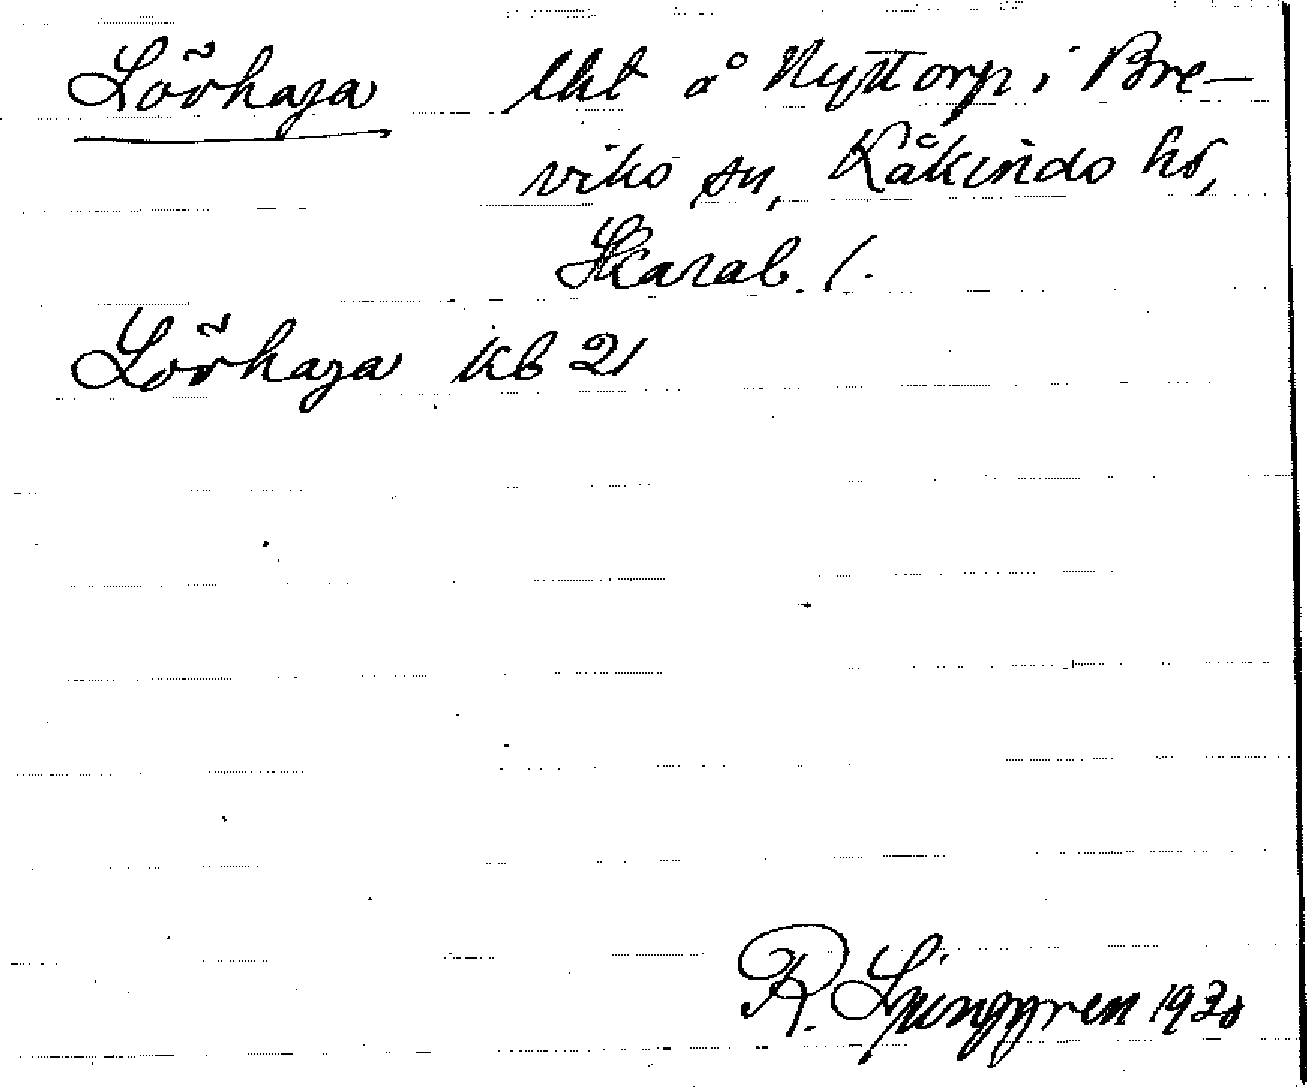 Lövhaga lht å Nyttorp i Bre-
viks sn, Kåkinds hd,
Skarab. l.
Lövhaga kb 21
R. Ljunggren 1930